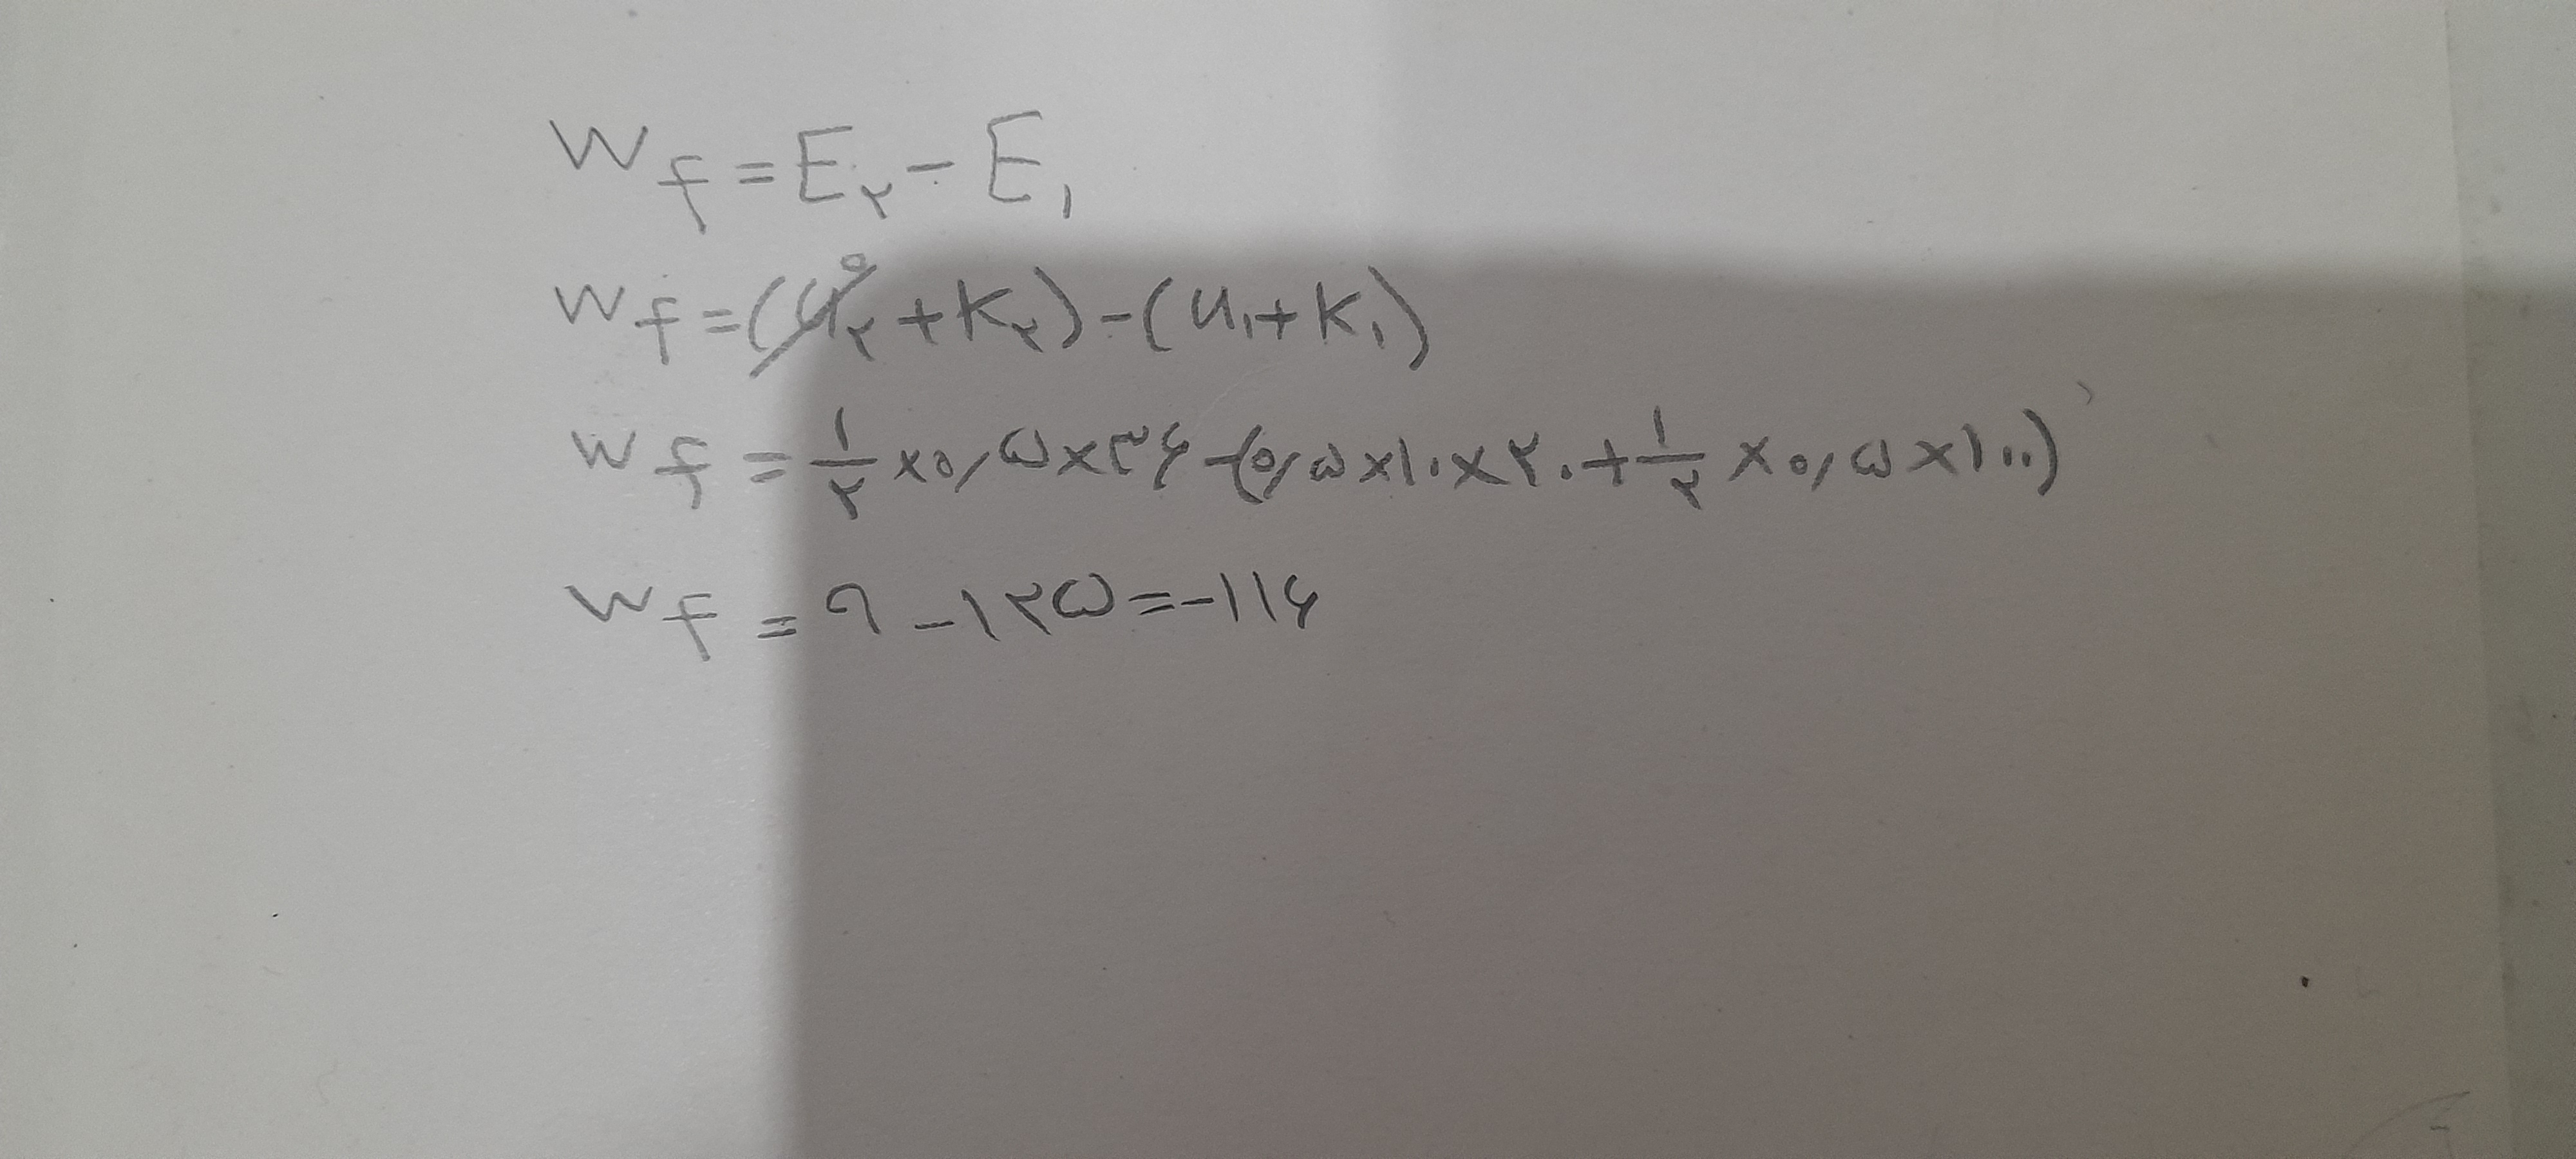 W_f = E_۲ - E_۱
W_f = (U_۲^۰ + K_۲) - (U_۱ + K_۱)
W_f = ۱/۲ × ۰٫۵ × ۳۶ - (۰٫۵ × ۱۰ × ۲۰ + ۱/۲ × ۰٫۵ × ۱۰۰)
W_f = ۹ - ۱۲۵ = -۱۱۶